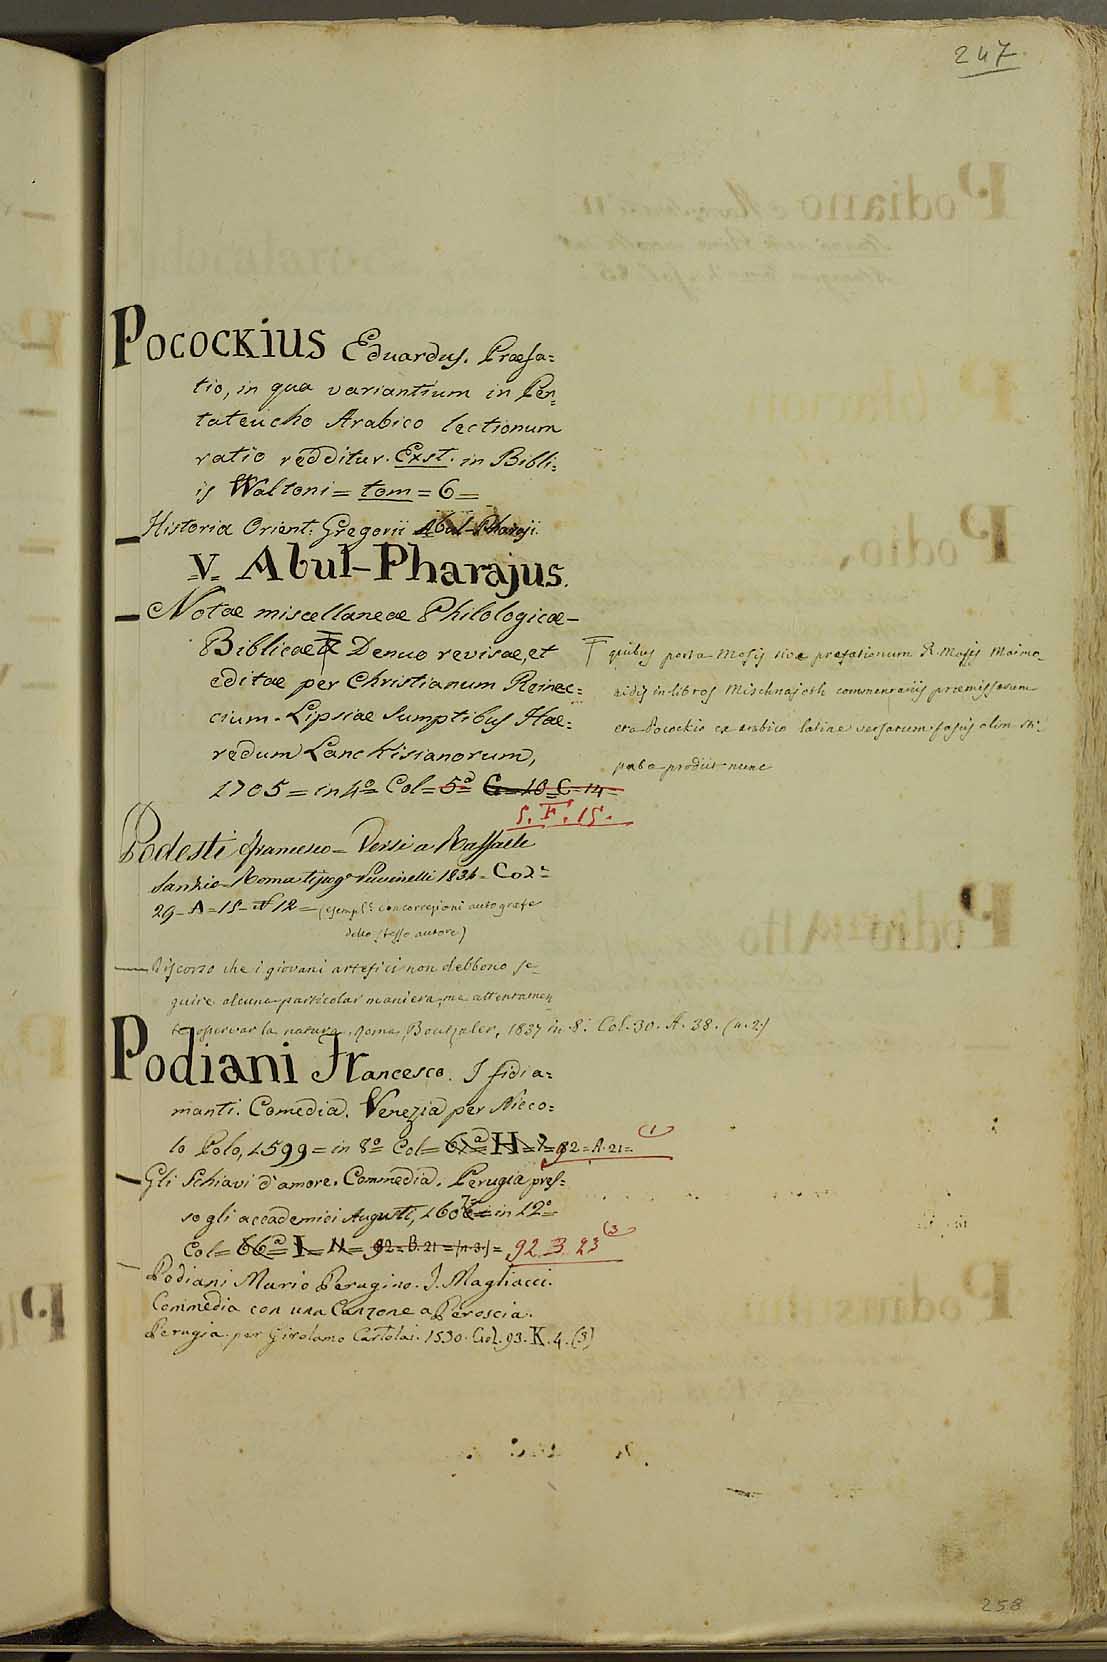 247
Pocockius Eduardus. Præfa=
tio, in qua variantium in Pen=
tateucho Arabico lectionum
ratio redditur. Exst. in Bibli=
is Waltoni = tom = 6 =
Historia Orient: Gregorii Abul-Pharaji.
V. Abul-Pharajus.
Notæ miscellaneæ Philologicæ-
Biblicæ Denuo revisae, et
editæ per Christianum Reinec=
cium. Lipsiae Sumptibus Hae=
redum Lanckisianorum,
1705 = in 4º = Col = 5ª G = 10 = C = 14 =
5. F. 15.
quibus porta Mosis sive præfationum R. Mosis Maimo-
nidis in libros Mischnajoth commentariis præmissarum
et a Pocockio ex arabico latine versarum fasis olim sti-
pata prodiit nunc
Podesti Francesco = Versi a Raffaele
Sanzio - Roma tipogª Puccinelli 1834 - Colª
29 - A = 15 - Nº 12 = (esempl: con correzioni autografe
dello stesso autore)
Discorso che i giovani artefici non debbono se-
guire alcuna particolar maniera, ma attentamen
te osservar la natura. Roma, Boulzaler, 1837 in 8º Col. 30. A. 38. (n. 2)
Podiani Francesco. I fidi a=
manti. Comedia. Venezia per Nicco=
lo Polo, 1599 = in 8º Col = 67ª H = 7 = 92 = A. 21 = (1
Gli Schiavi d'amore. Commedia. Perugia pres=
so gli accademici Augusti, 1607 = in 12º
Col = 66ª I = 11 = 92 = B. 21 = (n 3.) = 92. B. 23 (3
Podiani Mario Perugino. I Magliacci.
Commedia con una Canzone a Peroscia.
Perugia. per Girolamo Cartolai. 1530. Col. 93. K. 4. (3)
258